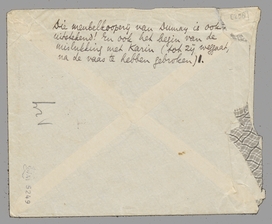 Die meubelkooperij van Dumay is ook
uitstekend! En ook het begin van de
mislukking met Karin (tot zij weggaat,
na de vaas te hebben gebroken).